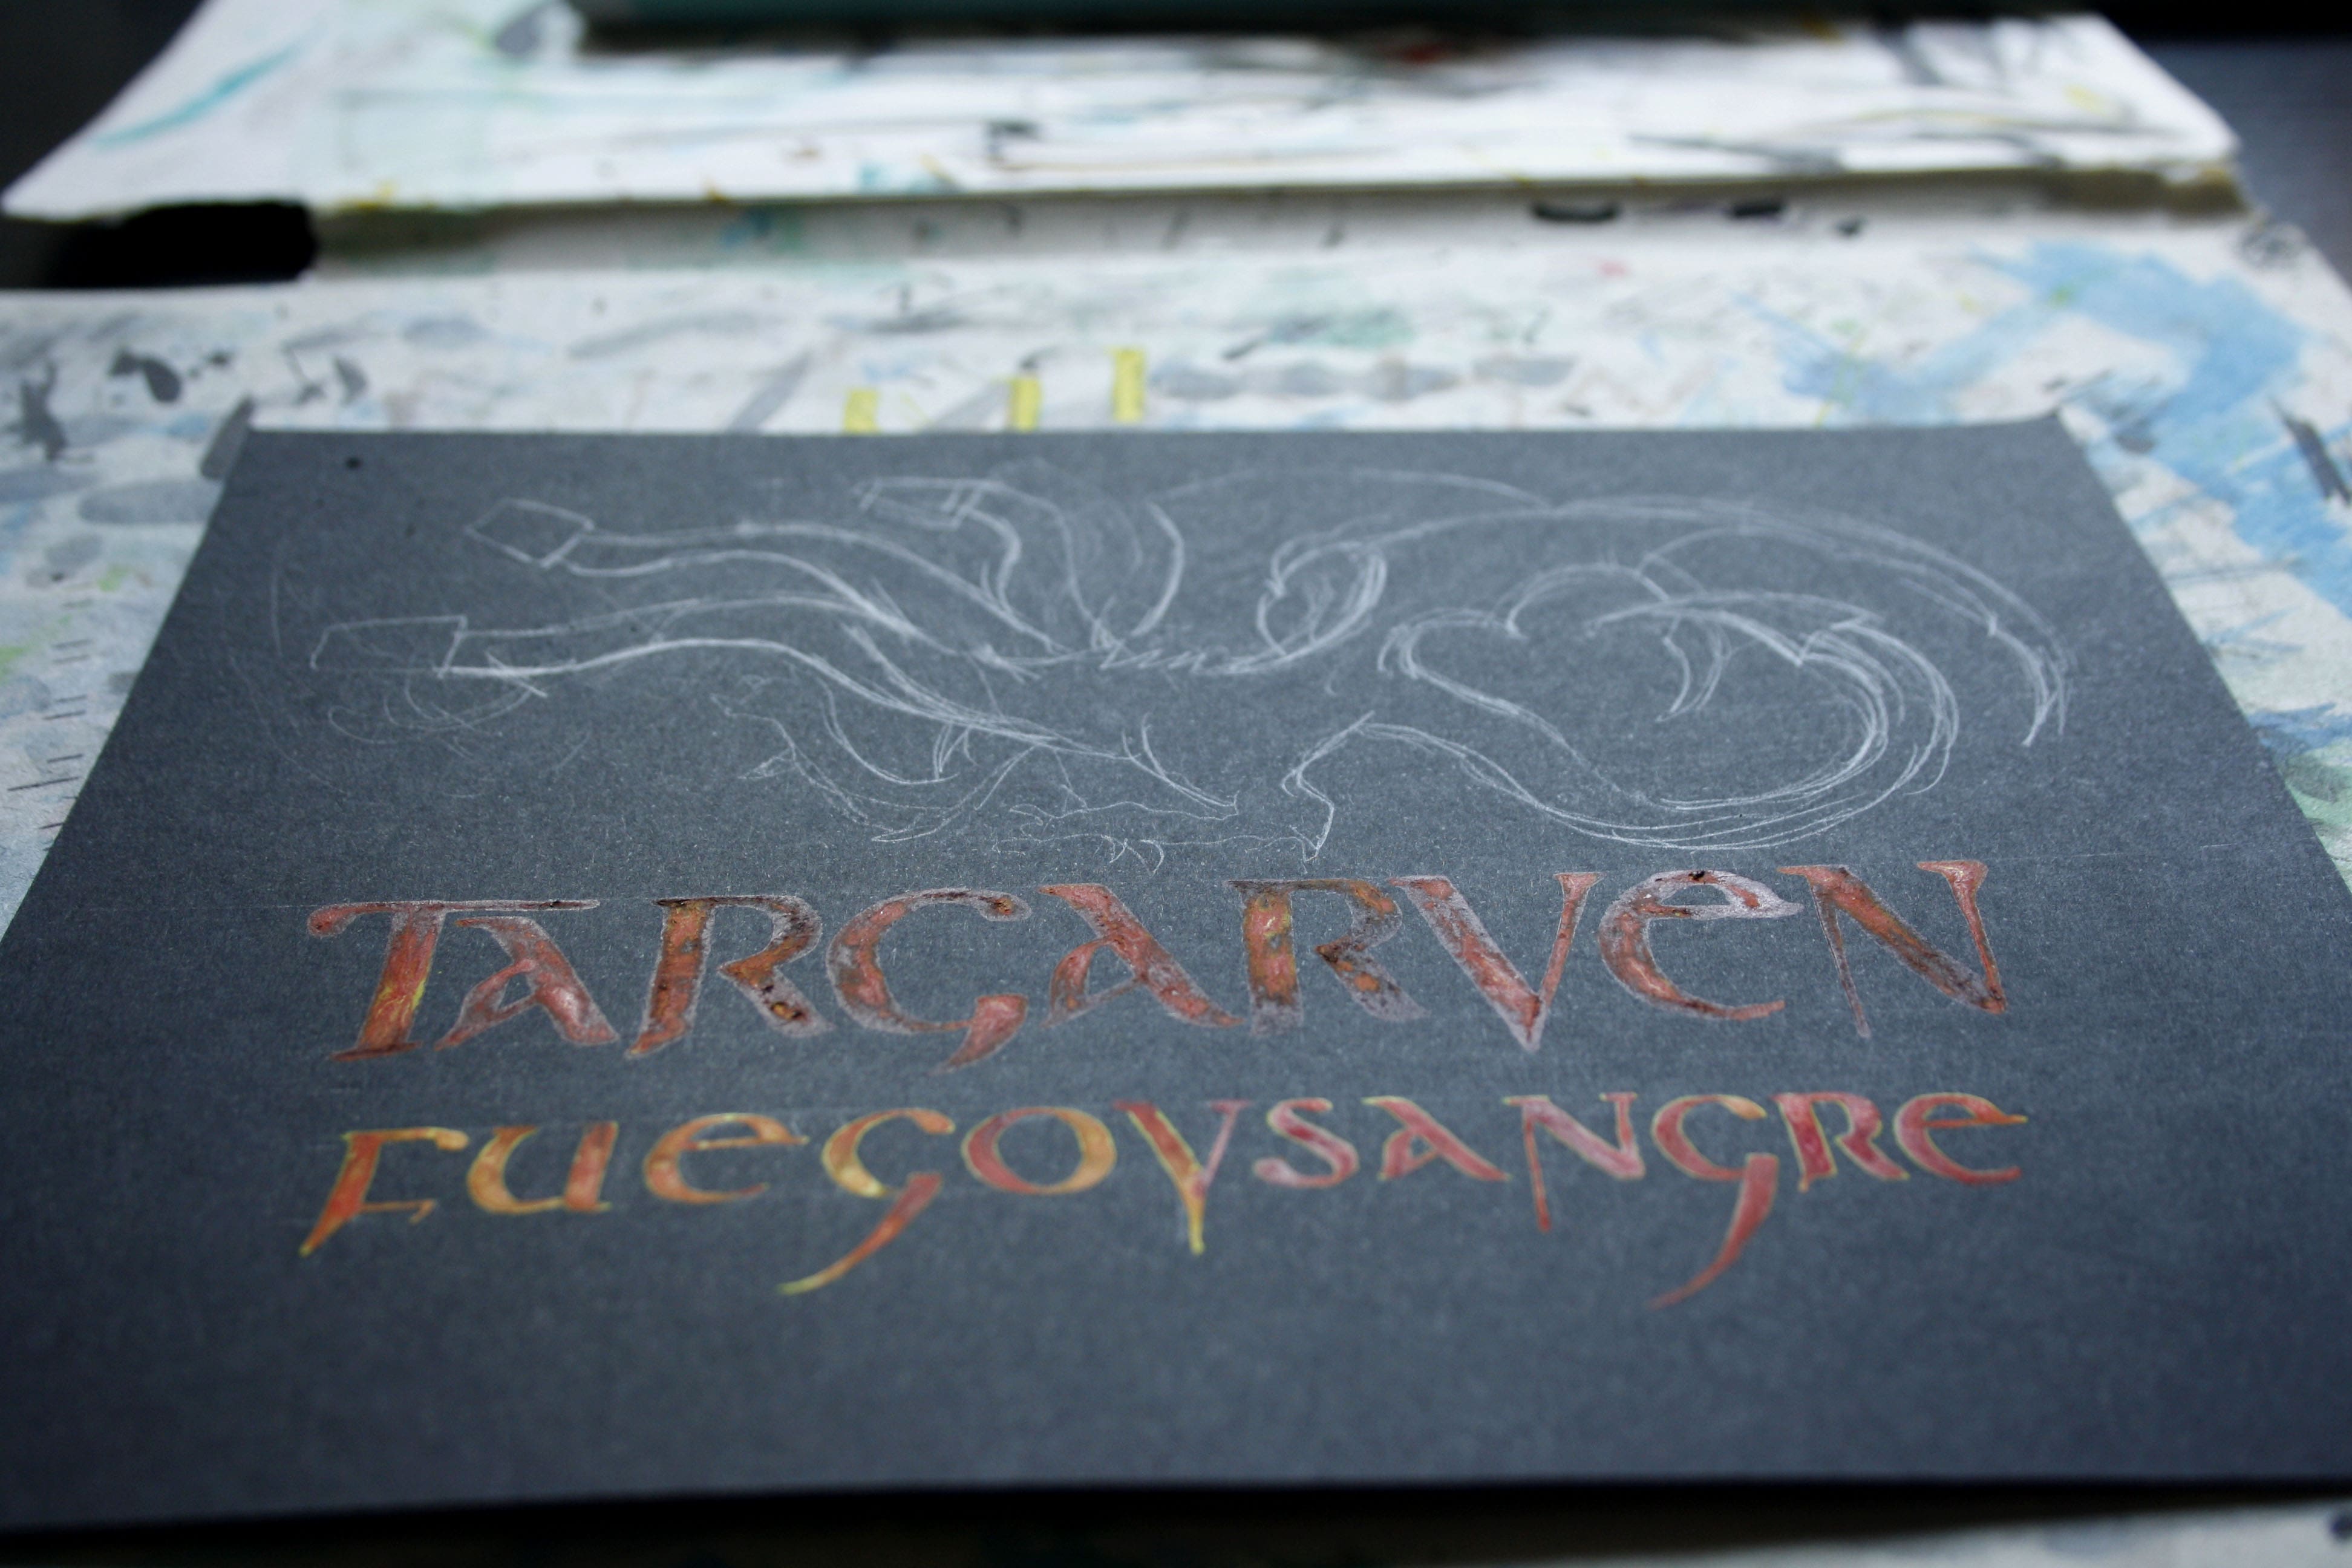 TARGARVEN
FUEGOYSANGRE